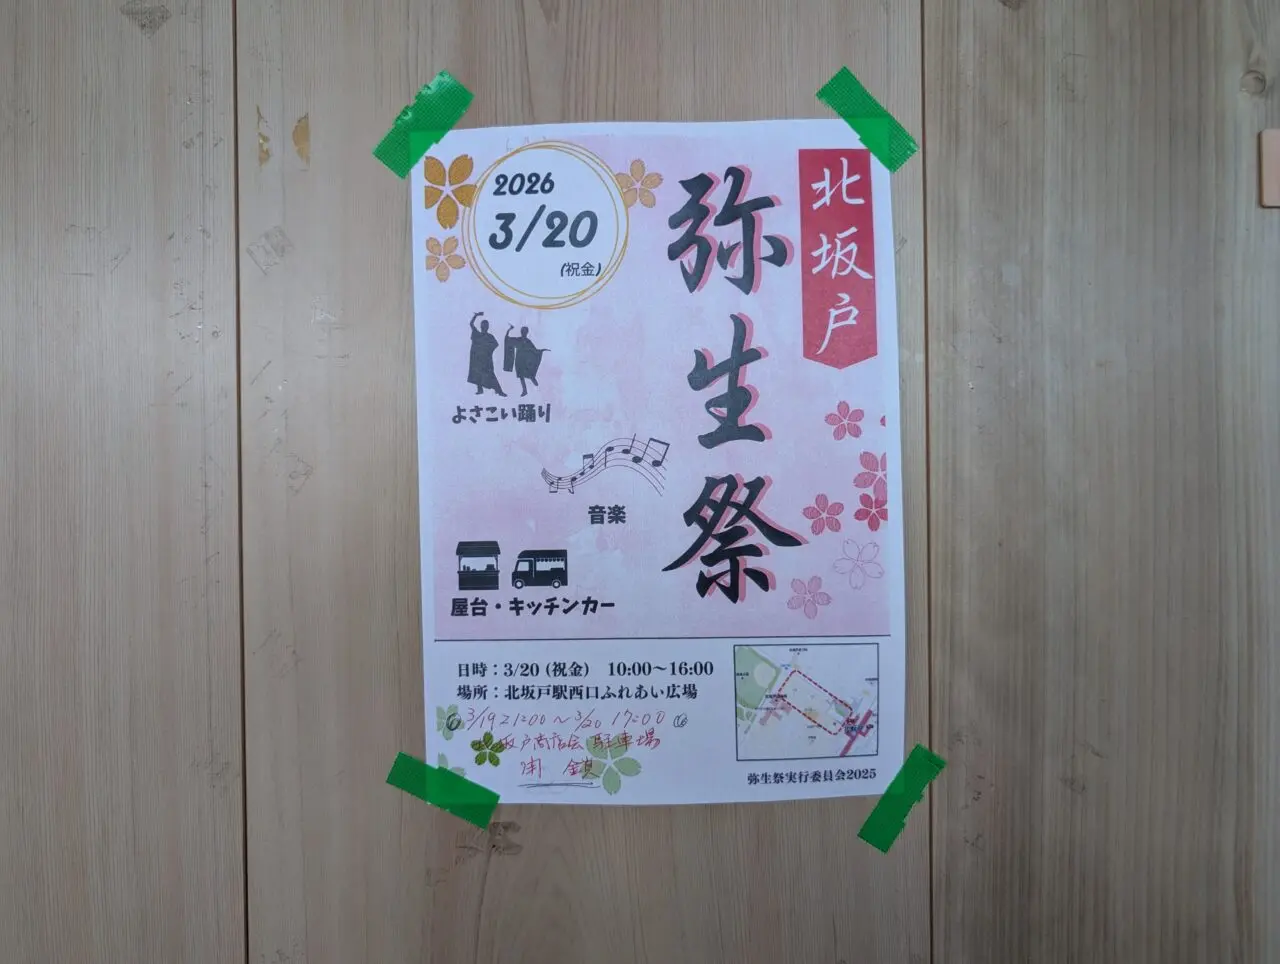 北坂戸
弥生祭
2026
3/20
(祝金)
よさこい踊り
音楽
屋台・キッチンカー
日時：3/20 (祝金)　10:00～16:00
場所：北坂戸駅西口ふれあい広場
3/19 21:00 ～ 3/20 17:00
坂戸商店会 駐車場
閉 鎖
弥生祭実行委員会2025